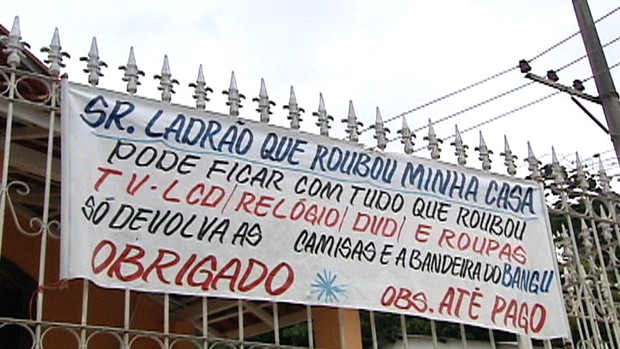 SR. LADRÃO QUE ROUBOU MINHA CASA
PODE FICAR COM TUDO QUE ROUBOU
TV-LCD/RELÓGIO/DVD/ E ROUPAS
SÓ DEVOLVA AS CAMISAS E A BANDEIRA DO BANGU
OBRIGADO OBS. ATÉ PAGO